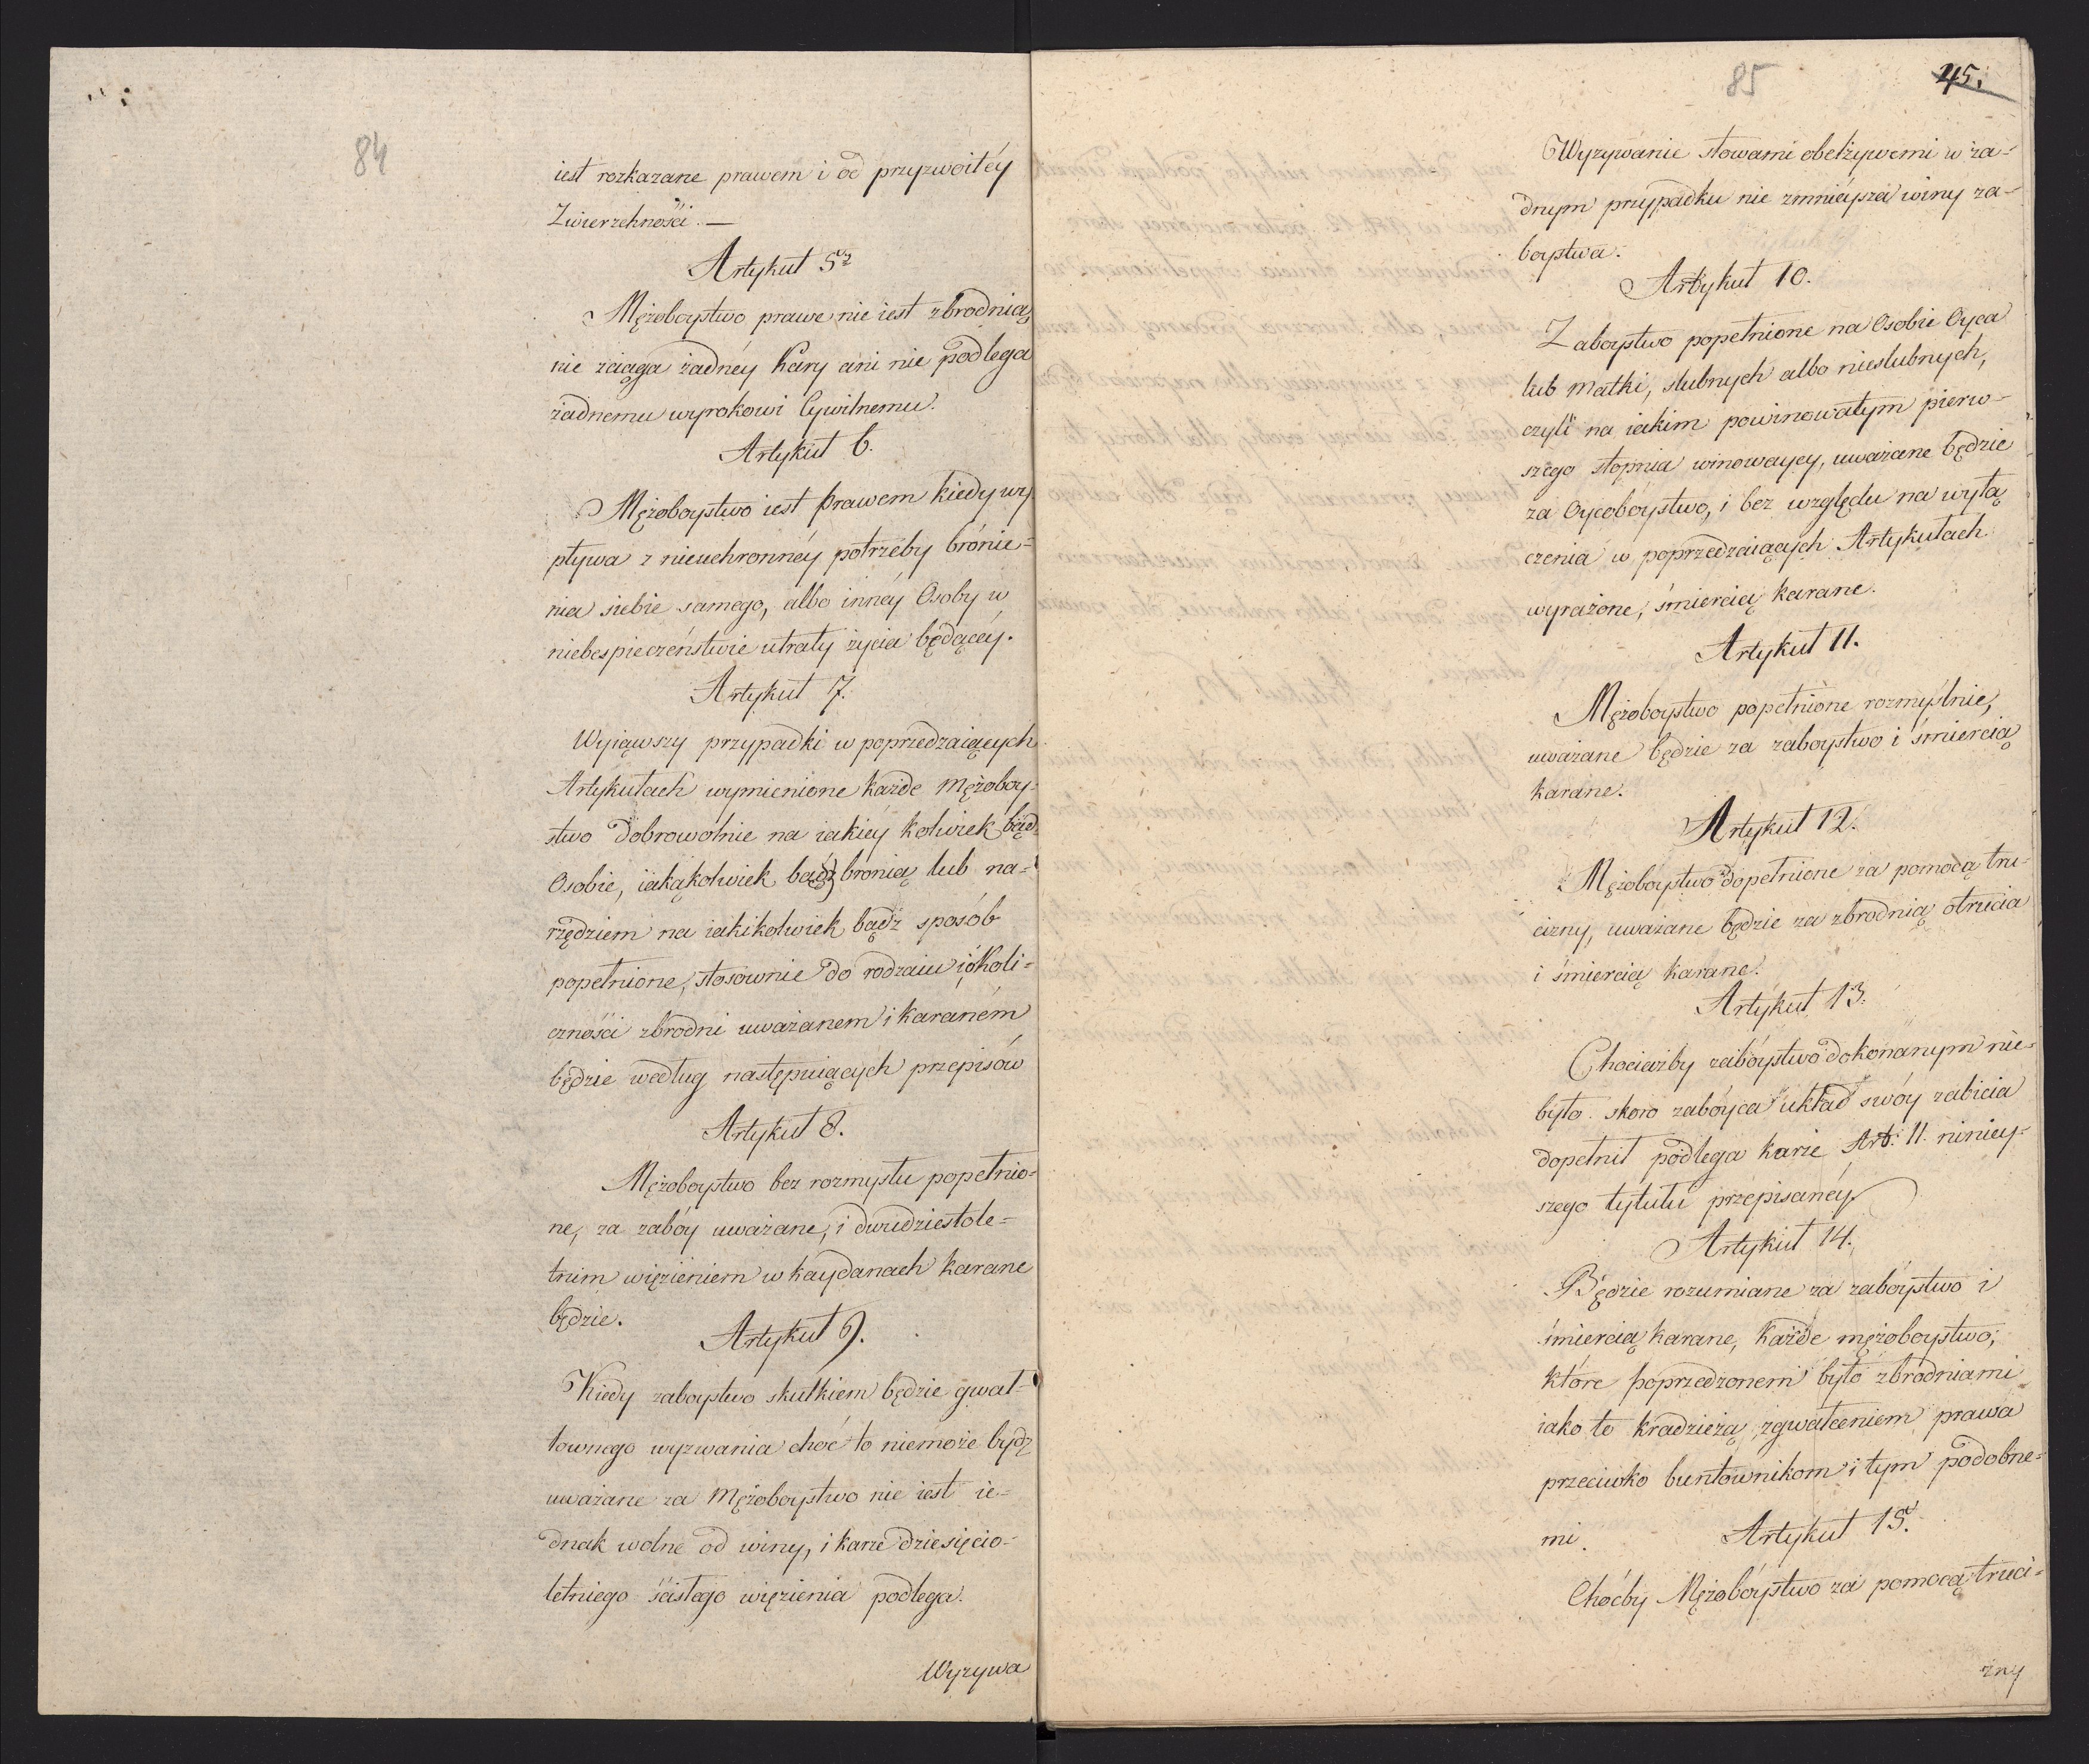 84
iest rozkazane prawem i od przyzwoitéy
Zwierzchności. —
Artykuł 5.
Mężoboystwo prawe nie iest zbrodnią,
nie zciąga żadnéy Kary ani nie podlega
żadnemu wyrokowi Cywilnemu.
Artykuł 6.
Mężoboystwo iest prawem kiedy wy
pływa z nieuchronnéy potrzeby bronie=
nia siebie samego, albo innéy Osoby w
niebespieczeństwie utraty życia będącéy.
Artykuł 7.
Wyiąwszy przypadki w poprzedzaiących
Artykułach wymienione każde Mężoboy-
stwo dobrowolnie na iakiéy kolwiek bądź
Osobie, iakąkolwiek bądź bronią lub na=
rzędziem na iakikolwiek bądź sposób
popełnione, stosownie do rodzaiu i okoli=
czności zbrodni uważanem i karaném
będzie według następuiących przepisów
Artykuł 8.
Mężoboystwo bez rozmysłu popełnio=
ne, za zabóy uważane, i dwudziestole=
tnim więzieniem w kaydanach karane
będzie.
Artykuł 9.
Kiedy zaboystwo skutkiem będzie gwał=
townego wyzwania choć to niemoże bydź
uważane za Mężoboystwo nie iest ie-
dnak wolne od winy, i karze dziesięcio-
letniego ścisłego więzienia podlega.
Wyzywa
85
45.
Wyzywanie słowami obelżywemi w ża=
dnym przypadku nie zmnieysza winy za-
boystwa.
Artykuł 10.
Zaboystwo popełnione na Osobie Oyca
lub Matki, slubnych albo nieslubnych,
czyli na iakim powinowatym pierw-
szego stopnia winowaycy, uważane będzie
za Oycobóystwo, i bez względu na wyłą
czenia w poprzedzaiących Artykułach
wyrażone, śmiercią karane.
Artykuł 11.
Mężoboystwo popełnione rozmyślnie,
uważane będzie za zaboystwo i śmiercią
karane.
Artykuł 12.
Mężoboystwo dopełnione za pomocą tru-
cizny, uważane będzie za zbrodnią otrucia
i śmiercią karane.
Artykuł 13.
Chociażby zabóystwo dokonanym nie=
było skoro zabóyca układ swóy zabicia
dopełnił podlega karze Art: 11. niniey=
szego tytułu przepisanéy.
Artykuł 14.
Będzie rozumiane za zabóystwo i
śmiercią karane, każde mężoboystwo,
które poprzedzonem było zbrodniami
iako to kradzieżą, zgwałceniem prawa
przeciwko buntownikom i tym podobne=
mi.
Artykuł 15.
Choćby Mężobóystwo za pomocą truci=
zny